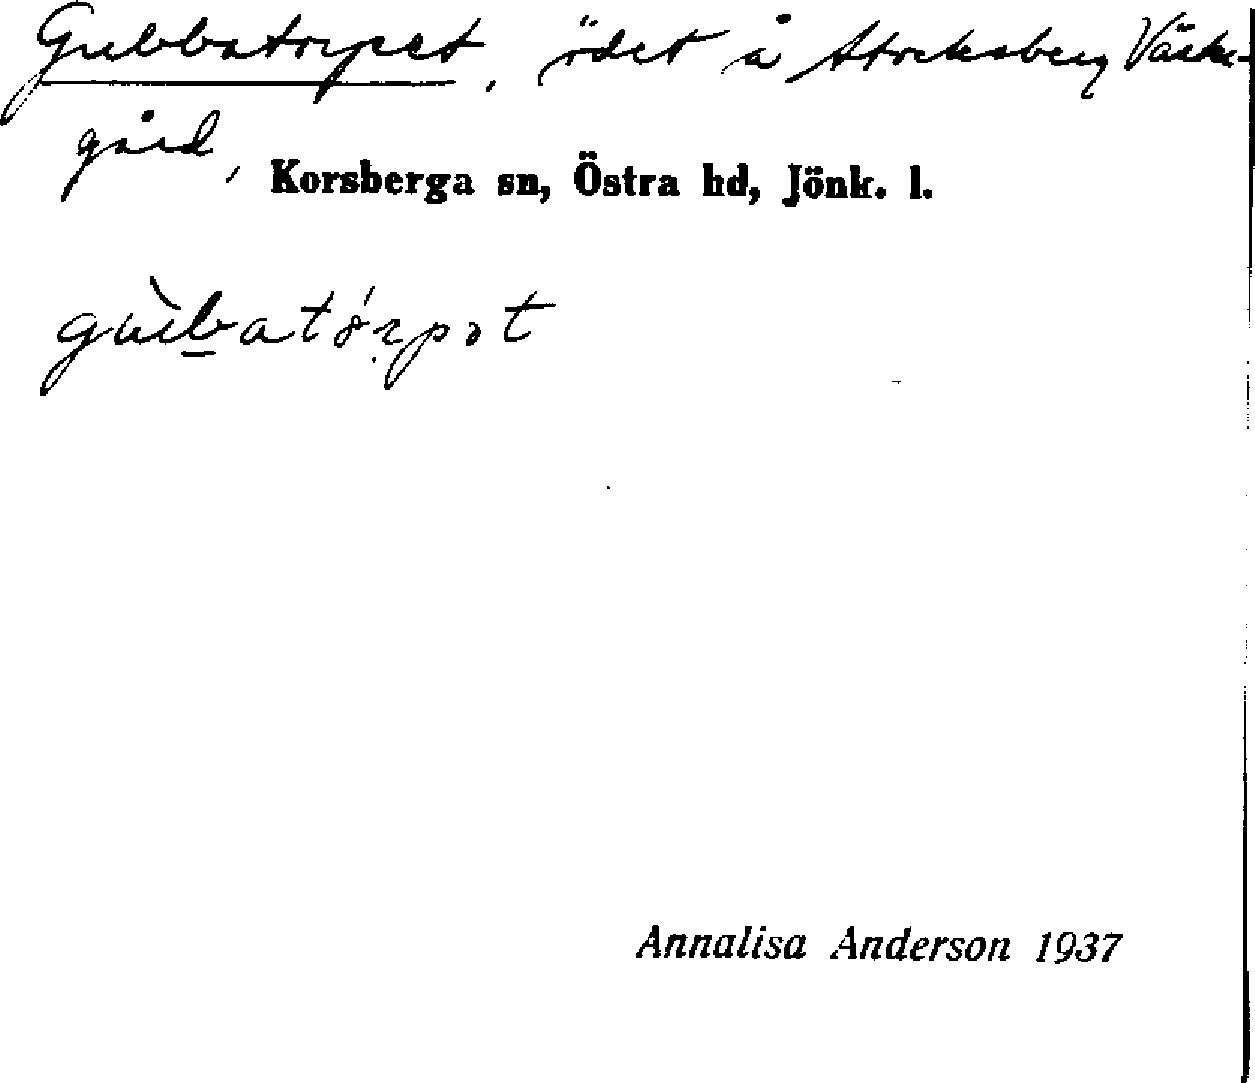 Gubbatorpet, ödet å Stocksberg Väster-
gård,
Korsberga sn, Östra hd, Jönk. l.
Annalisa Anderson 1937